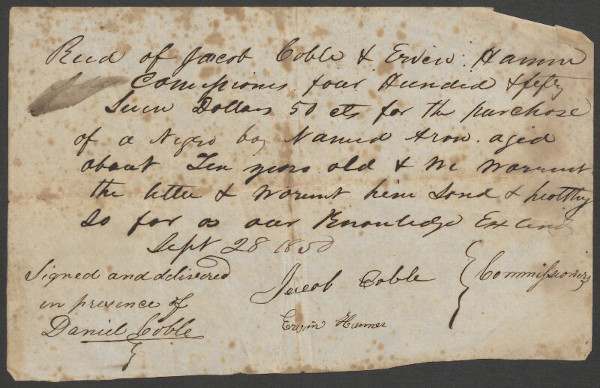 Recd of Jacob Coble & Ervin Hamm
Comissiones four Hundred & fifty
Seven Dollars 50 cts for the purchase
of a Negro boy Named Aron aged
about Ten years old & We Warrent
the little & Warent him Sond & healthy
so far as our Knowledge Extends
Sept 28 1850
Signed and delivered
in presence of
Daniel Coble
Jacob Coble
Ervin Hamm
Commissioners